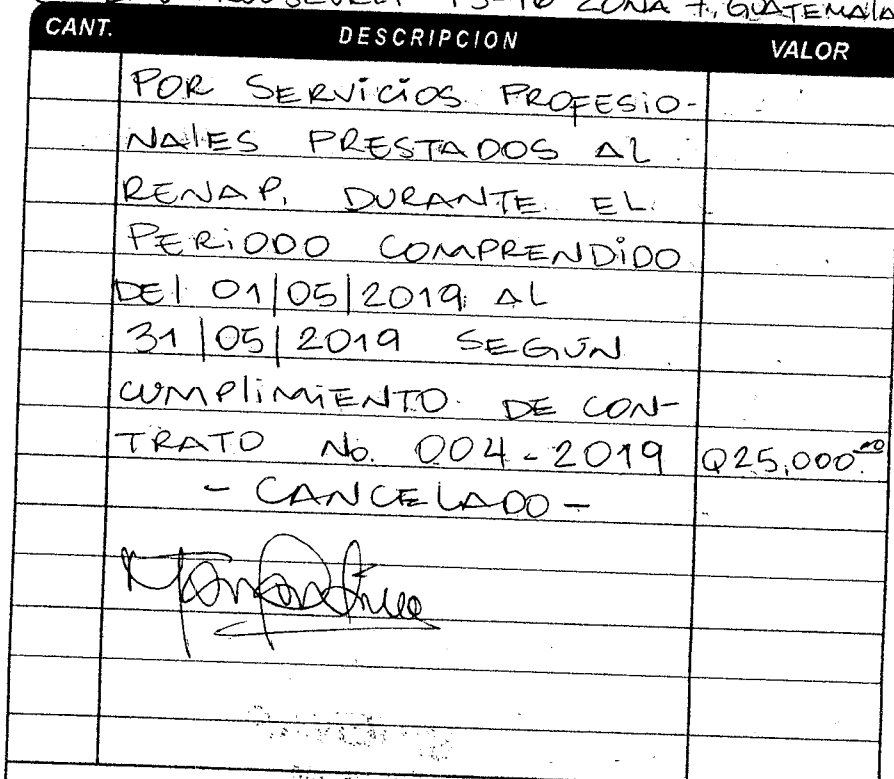 ROOSEVELT 13-46 ZONA 7, GUATEMALA
CANT. DESCRIPCION VALOR
POR SERVICIOS PROFESIO-
NALES PRESTADOS AL
RENAP, DURANTE EL
PERIODO COMPRENDIDO
DEL 01/05/2019 AL
31/05/2019 SEGÚN
CUMPLIMIENTO DE CON-
TRATO No. 004-2019 Q25,000.00
- CANCELADO -